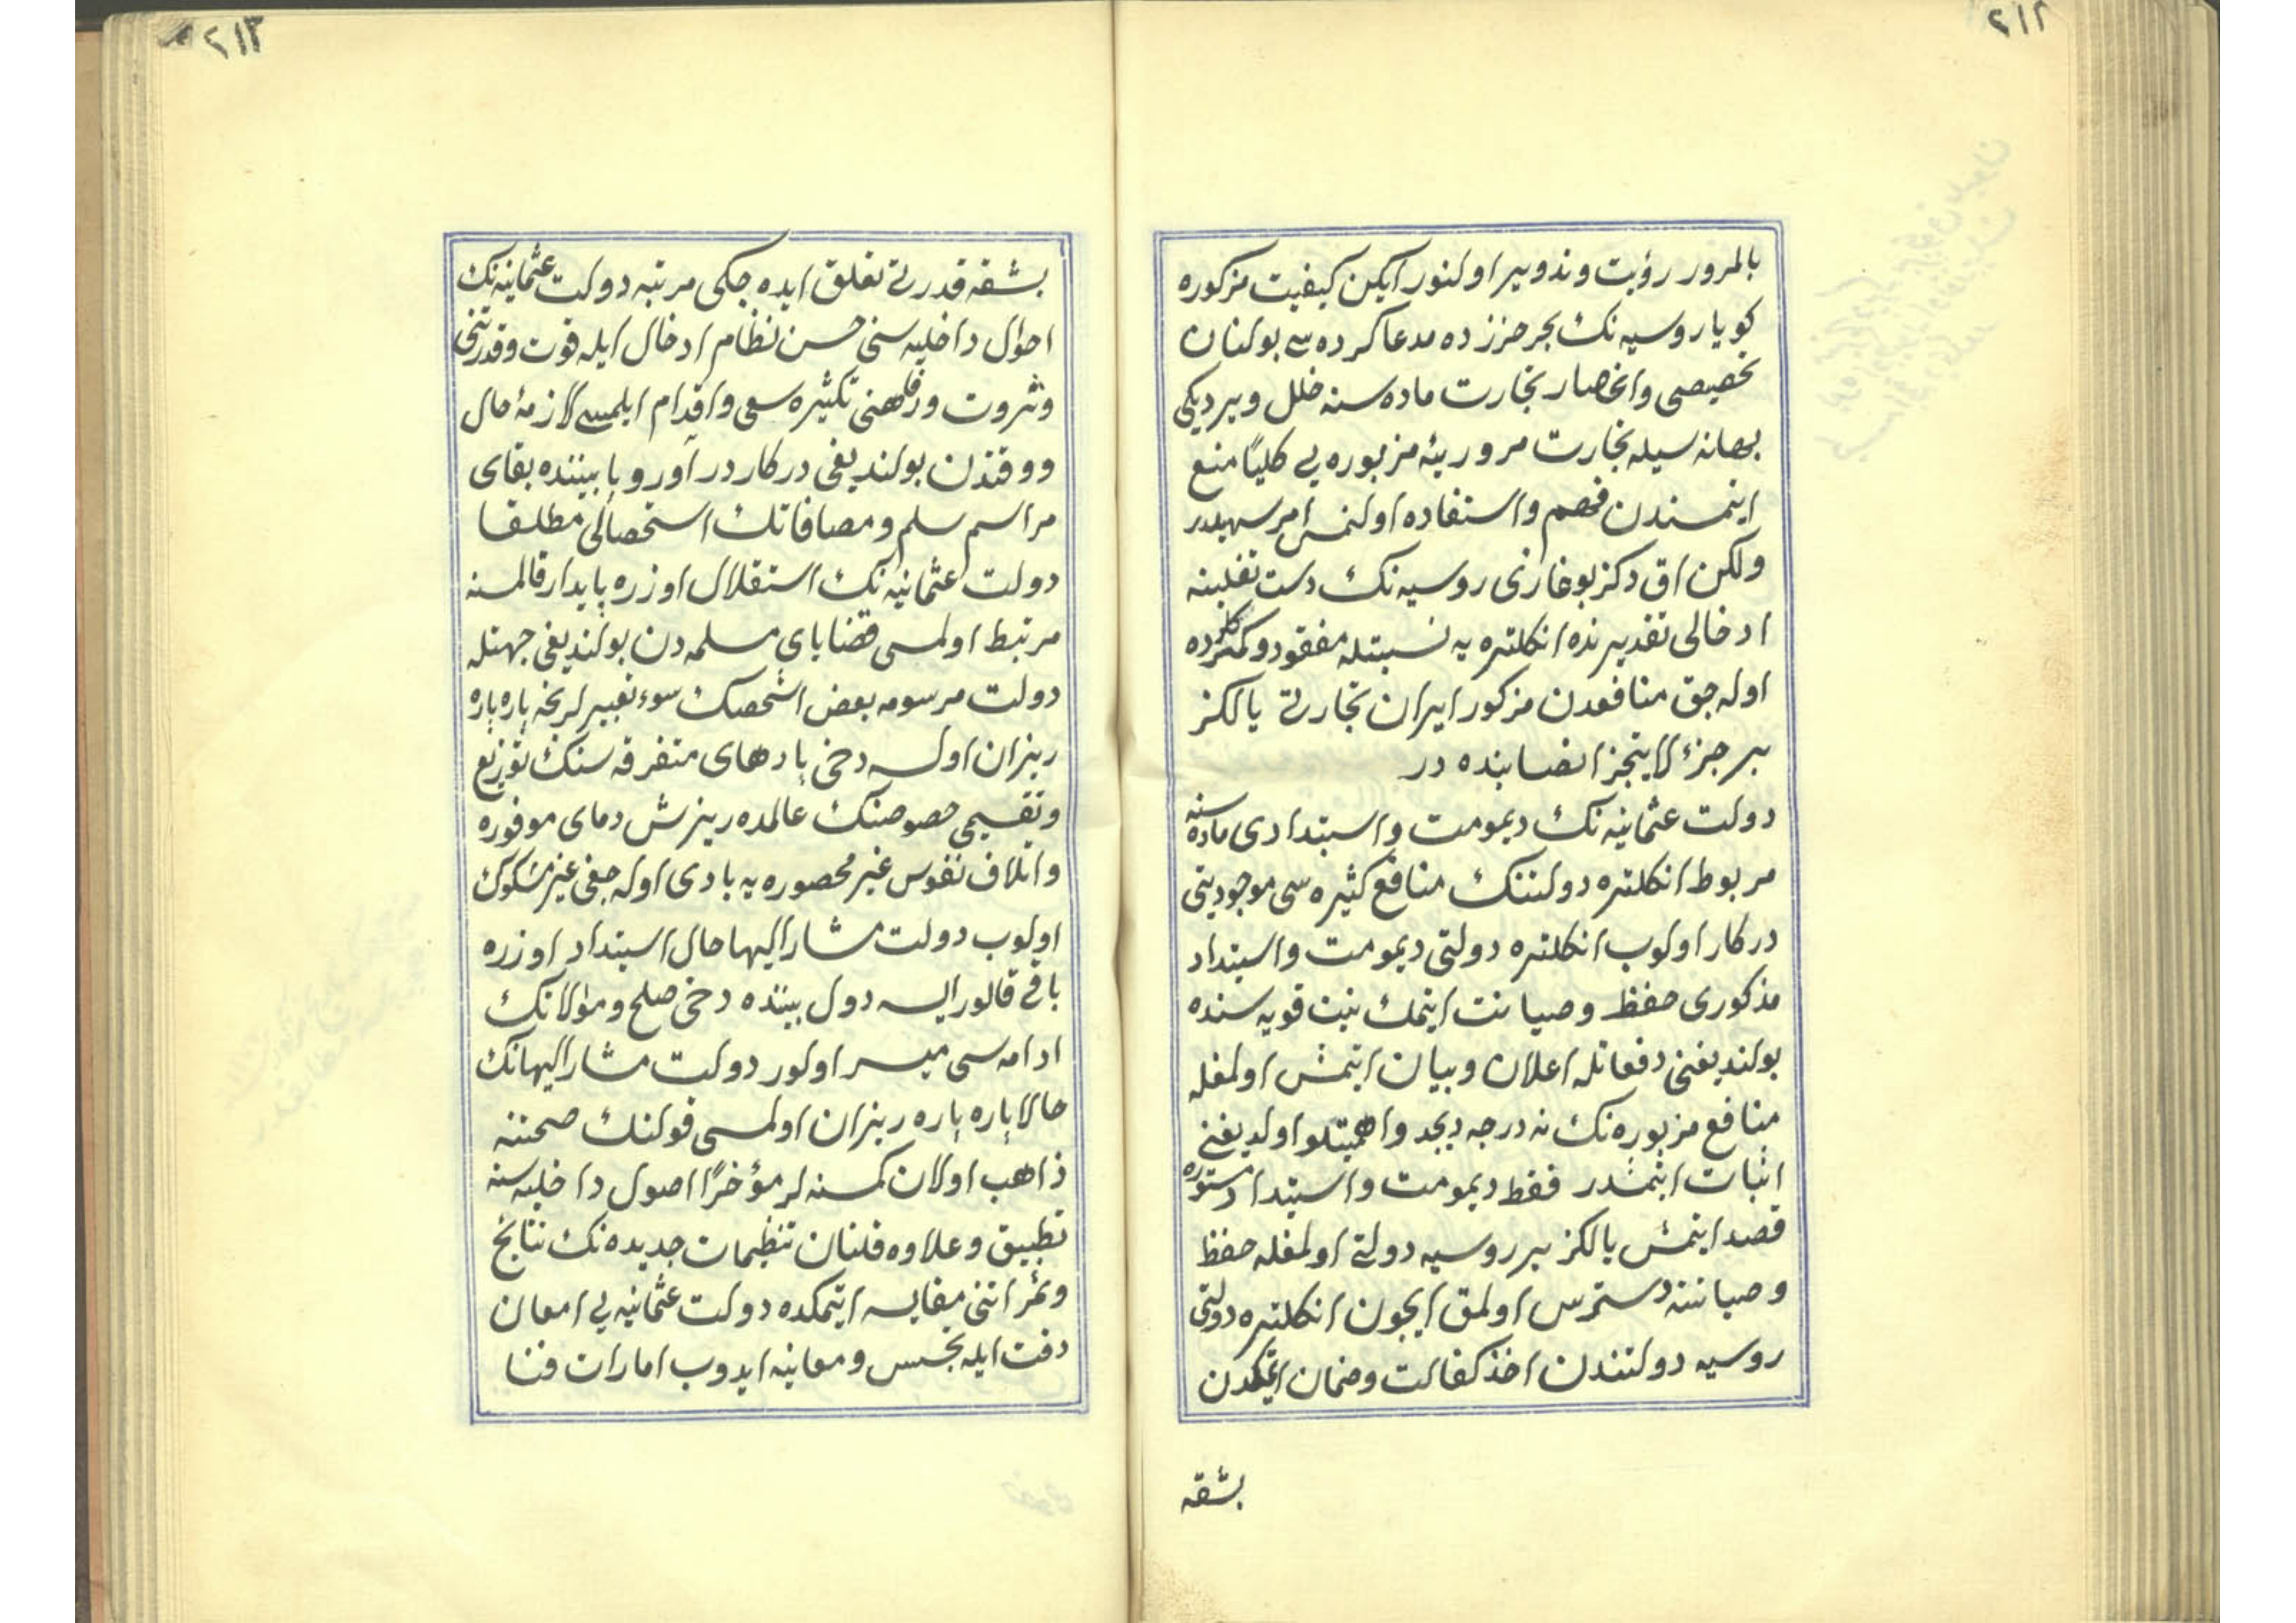 ٢١٢
بالمرور رؤيت وتدوير اولنور ايكن كيفيت مزكوره
كويا روسيه نك بحر خزرده مدعا كرده سى بولنان
تخصيصى وانحصار تجارت ماده سنه خلل ويرديكى
بهانه سيله تجارت مروريۀ مزبوره يى كلياً منع
ايتمسندن فهم واستفاده اولنمس امر سهيلدر
ولكن اق دكز بوغازى روسيه نك دست تغلبنه
ادخالى تقديرنده انكلتره يه نسبتله مفقود وكمكرده
اوله جق منافعدن مزكور ايران تجارتى يالكز
بر جزء لايتجزا نصابنده در
دولت عثمانيه نك ديمومت واستبدادى ماده سنه
مربوط انكلتره دولتنك منافع كثيره سى موجوديتى
دركار اولوب انكلتره دولتى ديمومت واستبداد
مذكورى حفظ وصيانت ايتمك نيت قويه سنده
بولنديغنى دفعاتله اعلان وبيان ايتمش اولمغله
منافع مزبوره نك نه درجه ديجد واهميتلو اولديغنى
اثبات ايتمشدر فقط ديمومت واستبداد مستوره
قصد ايتمش يالكز بر روسيه دولتى اولمغله حفظ
وصيانته دسترس اولمق ايچون انكلتره دولتى
روسيه دولتندن اخذ كفالت وضمان ايتمكدن
بشقه
٢١٣
بشقه قدرتى تعلق ايده جكى مرتبه دولت عثمانيه نك
احوال داخليه سنى حسن نظام ادخال ايله قوت وقدرتنى
وثروت ورفاهنى تكثيره سعى واقدام ايلمسى لازمۀ حال
ووقتدن بولنديغى دركاردر آوروپا بيننده بقاى
مراسم سلم ومصافاتك استحصالى مطلقا
دولت عثمانيه نك استقلال اوزره پايدار قالمسنه
مرتبط اولمسى قضاياى مسلمه دن بولنديغى جهتله
دولت مرسومه بعض اشخصك سوء تعبيرلرنجه پاره پاره
ريزان اولسه دخى پادهاى متفرقه سنك توزيع
وتقسيمى خصوصنك عالمده ريزش دماى موفوره
واتلاف نفوس غير محصوره يه بادى اوله جغى غير مشكوك
اولوب دولت مشار اليها حال استبداد اوزره
باقى قالور ايسه دول بيننده دخى صلح وموالاتك
ادامه سى ميسر اولور دولت مشار اليهانك
حالا پاره پاره ريزان اولمسى قولنك صحتنه
ذاهب اولان كمسنه لر مؤخراً اصول داخليه سنه
تطبيق وعلاوه قلنان تنظيمات جديده نك نتايج
وثمراتنى مقايسه ايتمكده دولت عثمانيه يى امعان
دقت ايله تجسس ومعاينه ايدوب امارات فنا